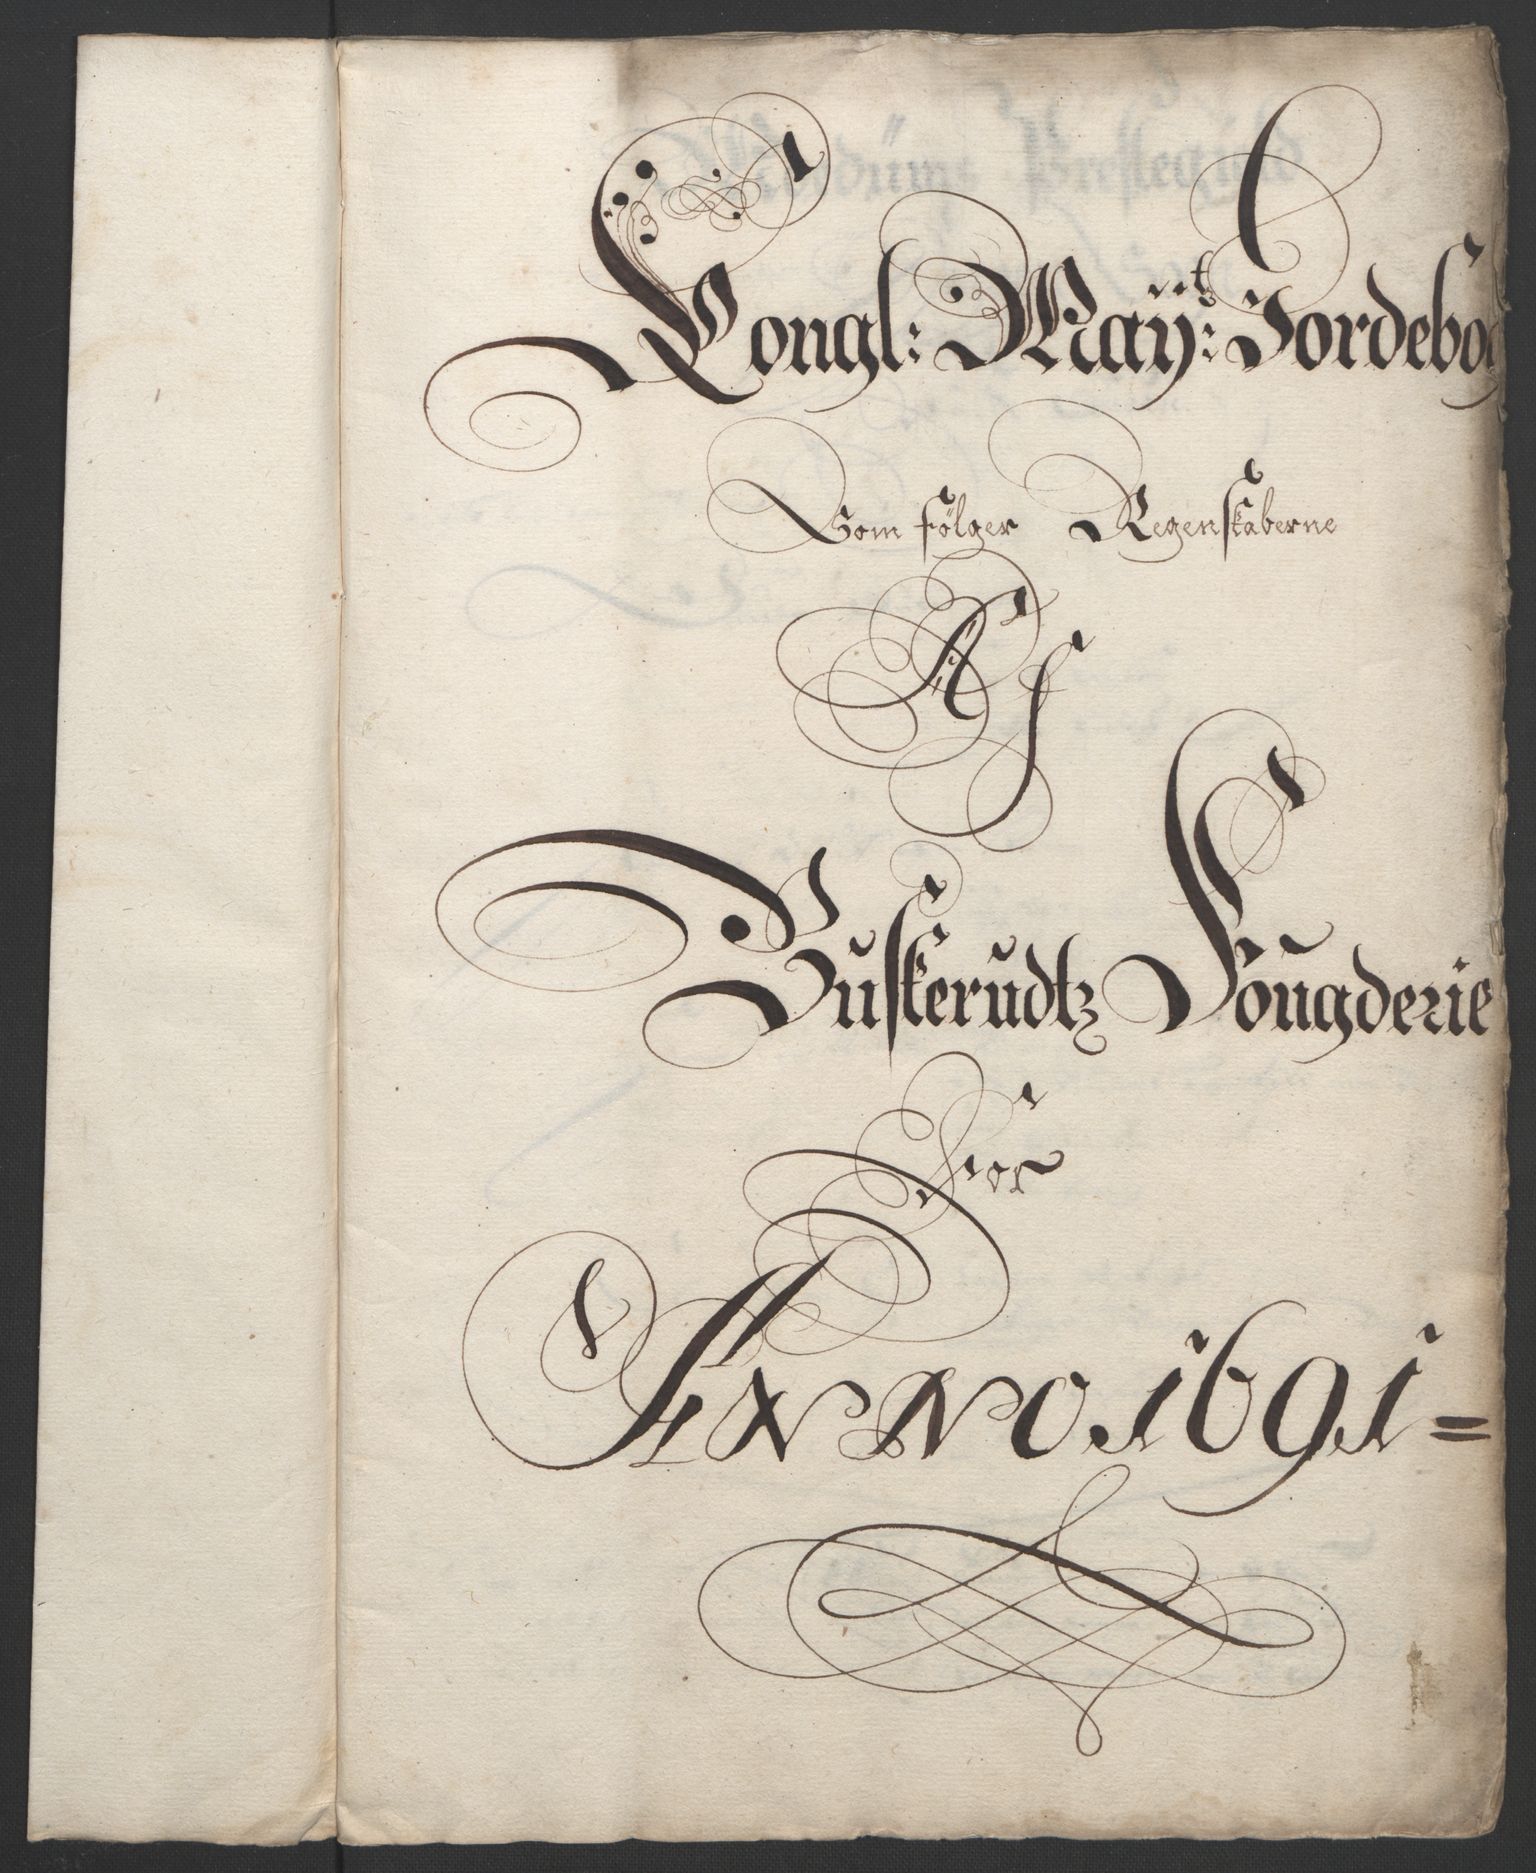 Congl: Mayᵗˢ: Jordebog
Som følger Regenskaberne
Af
Buskerudtz Fougderie
For
ANNO. 1691=